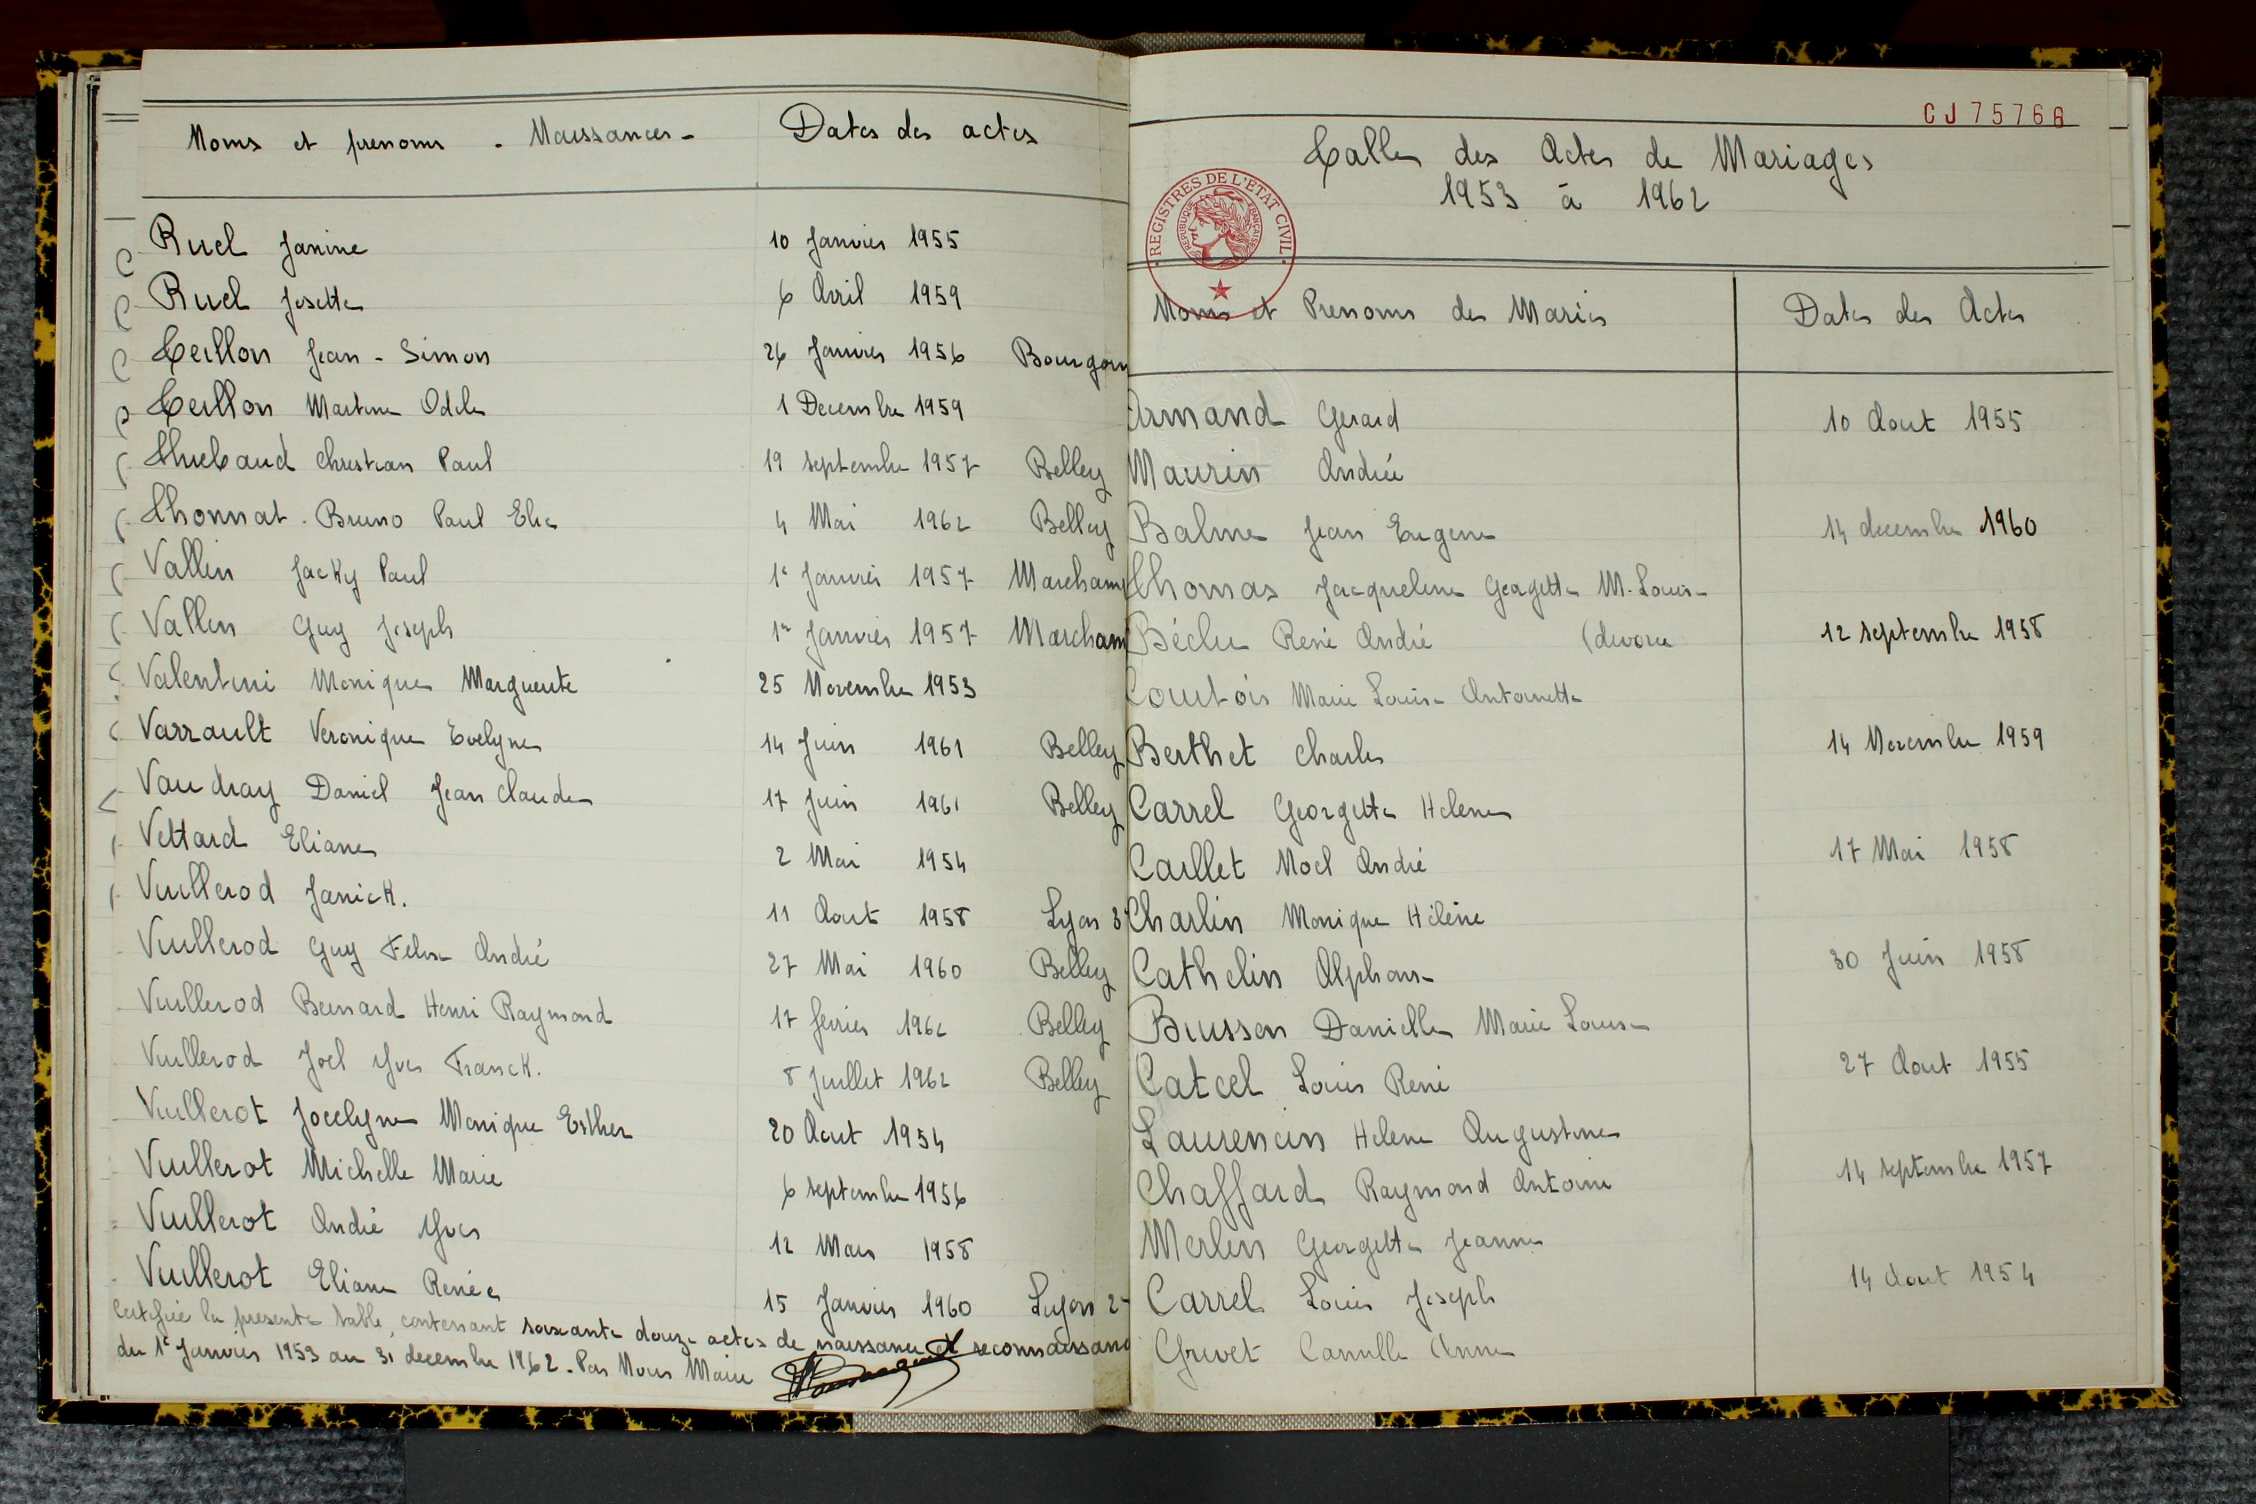 Noms et prenoms - Naissances - Dates des actes
Ruel Janine 10 Janvier 1955
Ruel Josette 6 Avril 1959
Teillon Jean - Simon 26 Janvier 1956 Bourgoin
Teillon Martine Odile 1 Decembre 1959
Thiebaud Christian Paul 19 septembre 1957 Belley
Thonnat. Bruno Paul Elie 4 Mai 1962 Belley
Vallin Jacky Paul 1e Janvier 1957 Marcham
Vallin Guy Joseph 1er Janvier 1957 Marcham
Valentini Monique Marguerite 25 Novembre 1953
Varrault Veronique Evelyne 14 Juin 1961 Belley
Vaudray Daniel Jean Claude 17 Juin 1961 Belley
Vettard Eliane 2 Mai 1954
Vuillerod Janick. 11 Aout 1958 Lyon 3
Vuillerod Guy Felix André 27 Mai 1960 Belley
Vuillerod Bernard Henri Raymond 17 fevrier 1962 Belley
Vuillerod Joel Yves Franck. 8 Juillet 1962 Belley
Vuillerot Jocelyne Monique Esther 20 Aout 1954
Vuillerot Michelle Marie 6 septembre 1956
Vuillerot André Yves 12 Mars 1958
Vuillerot Eliane Renée 15 Janvier 1960 Lyon 2
Certifiée la presente table, contenant soixante douze actes de naissance et reconnaissanc
du 1e Janvier 1953 au 31 decembre 1962. Par Nous Maire
CJ 75766
Tables des Actes de Mariages
1953 à 1962
REGISTRES DE L'ETAT CIVIL
REPUBLIQUE FRANÇAISE
Noms et Prenoms des Maries Dates des Actes
Armand Gerard 10 Aout 1955
Maurin Andrée
Balme Jean Eugene 14 decembre 1960
Thomas Jacqueline Georgette M. Louise
Béclu René André (divorce 12 septembre 1958
Courtois Marie Louise Antoinette
Berthet Charles 14 Novembre 1959
Carrel Georgette Helene
Caillet Noel André 17 Mai 1958
Charlin Monique Hélène
Cathelin Alphonse 30 Juin 1958
Busson Danielle Marie Louise
Catcel Louis René 27 Aout 1955
Laurencin Helene Augustine
Chaffard Raymond Antoine 14 septembre 1957
Merlin Georgette Jeanne
Carrel Louis Joseph 14 Aout 1954
Grivet Camille Anne